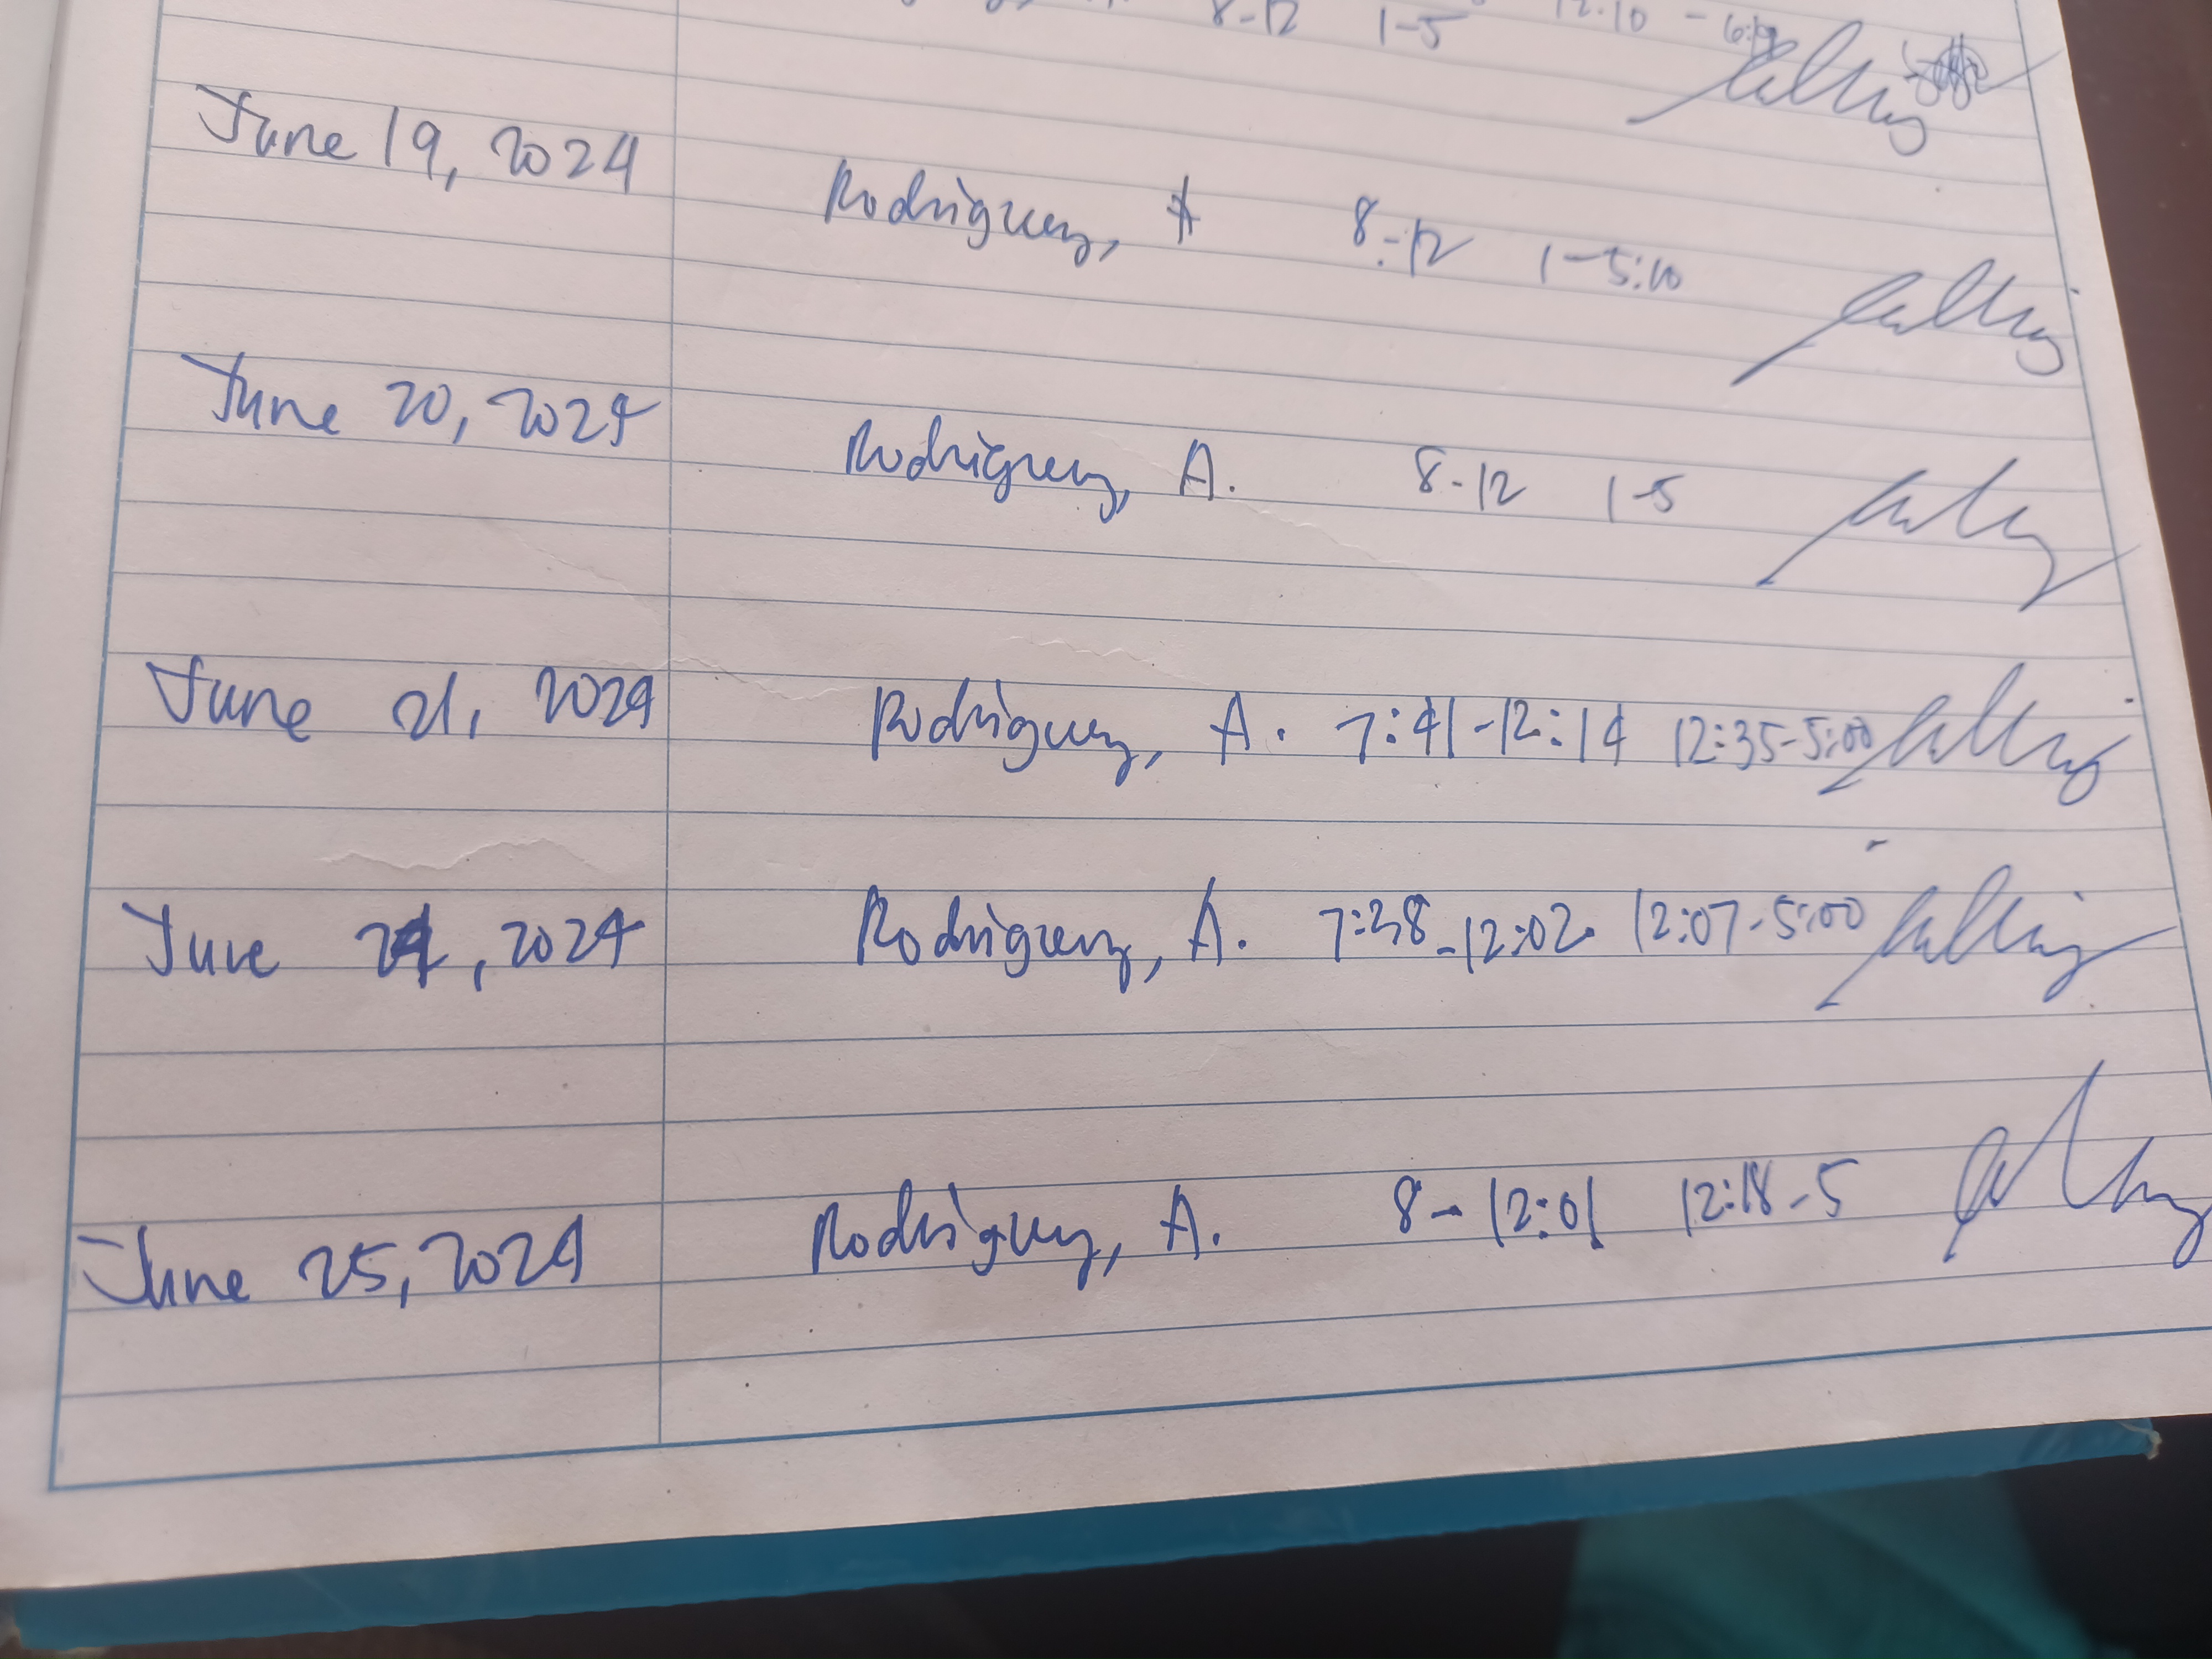 8-12 1-5 12:10 -
June 19, 2024 Rodriguez, A 8-12 1-5:10
June 20, 2024 Rodriguez, A. 8-12 1-5
June 21, 2024 Rodriguez, A. 7:41-12:14 12:35-5:00
June 24, 2024 Rodriguez, A. 7:38-12:02 12:07-5:00
June 25, 2024 Rodriguez, A. 8-12:01 12:18-5